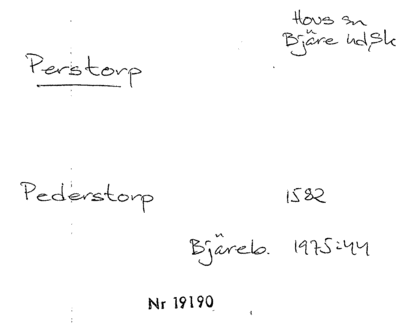 Hovs sn
Bjäre hd, Sk
Perstorp
Pederstorp 1582
Bjäreb. 1975:44
Nr 19190